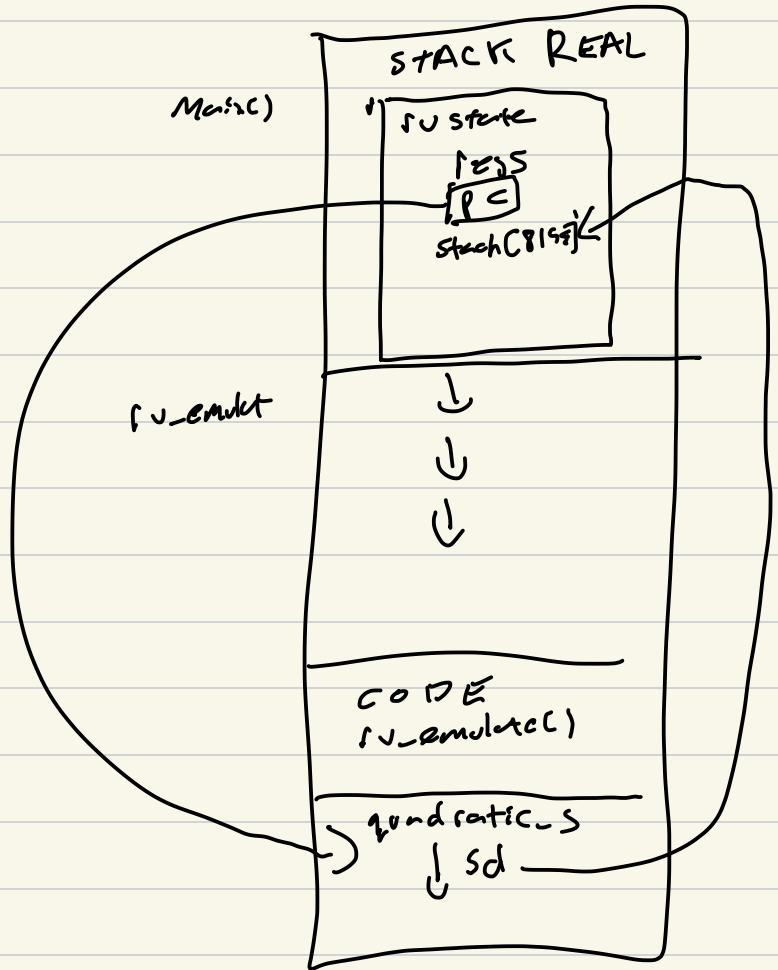 STACK REAL
Main()
rv state
regs
PC
stack[8192]
rv_emulat
CODE
rv_emulate()
quadratic_s
sd